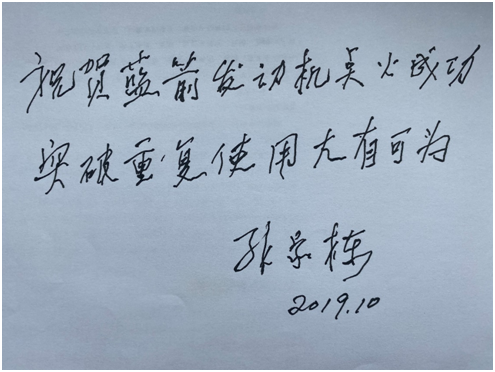 祝贺蓝箭发动机点火成功
突破重复使用大有可为
张家栋
2019.10